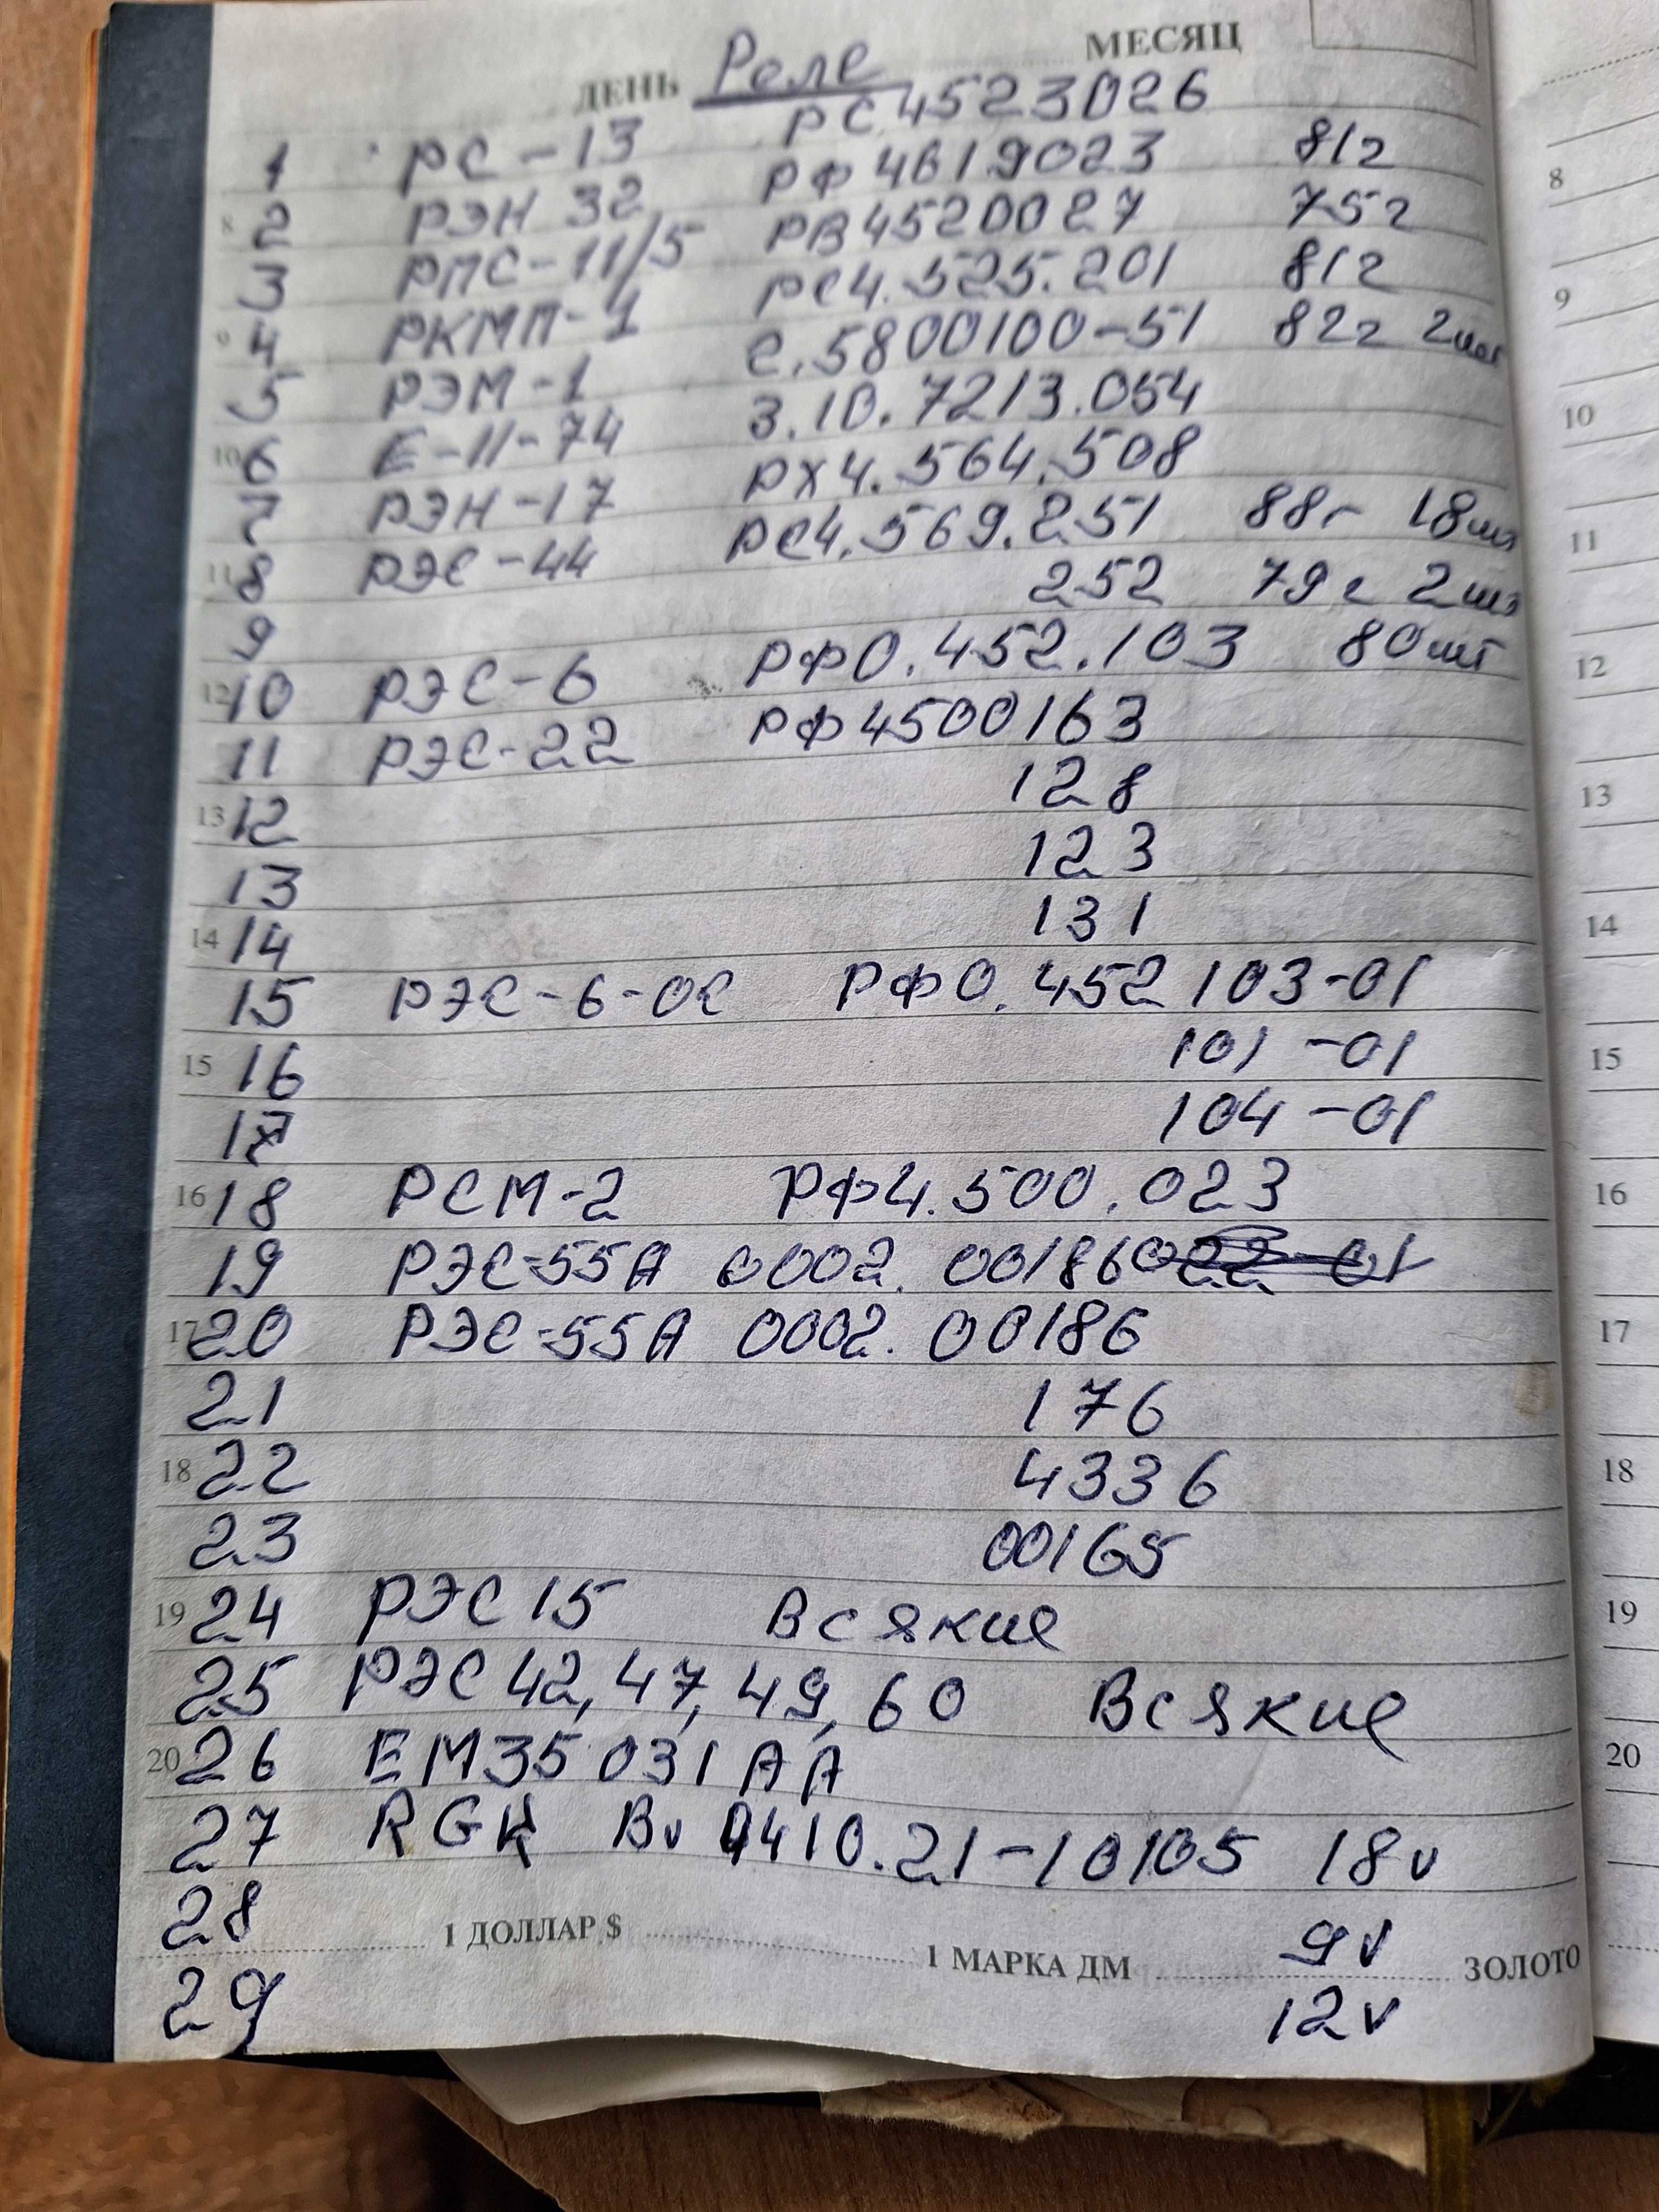 ДЕНЬ Реле МЕСЯЦ
1 РС-13 РС4523026 81г
8 2 РЭН 32 РФ4В19023 75г
3 РПС-11/5 РВ4520027 81г
9 4 РКМП-1 РС4.525.201 82г 2шт
5 РЭМ-1 С.5800100-51
10 6 Е-11-74 3.10.7213.054
7 РЭН-17 РХ4.564.508 88г 18шт
11 8 РЭС-44 РС4.569.251 79г 2шт
9 252
12 10 РЭС-6 РФ0.452.103 80шт
11 РЭС-22 РФ4500163
13 12 128
13 123
14 14 131
15 РЭС-6-ОС РФ0.452 103-01
15 16 101-01
17 104-01
16 18 РСМ-2 РФ4.500.023
19 РЭС-55А 0002.00186
17 20 РЭС-55А 0002.00186
21 176
18 22 4336
23 00165
19 24 РЭС 15 Всякие
25 РЭС 42, 47, 49, 60 Всякие
20 26 ЕМ35 031АА
27 RGK Bv 9410.21-10105 18v
28 9v
1 ДОЛЛАР $ 1 МАРКА ДМ ЗОЛОТО
29 12v
8
9
10
11
12
13
14
15
16
17
18
19
20